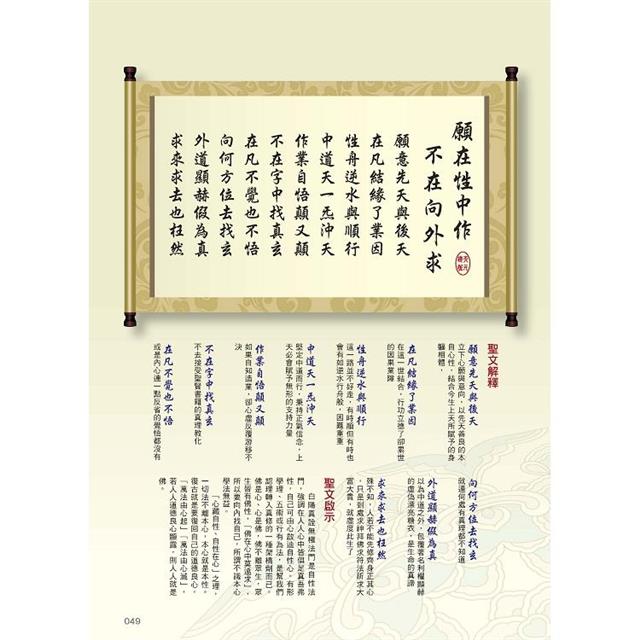 願在性中作
不在向外求
願意先天與後天
在凡結緣了業因
性舟逆水與順行
中道天一炁沖天
作業自悟顛又顛
不在字中找真玄
在凡不覺也不悟
向何方位去找玄
外道顯赫假為真
求來求去也枉然
聖文解釋
願意先天與後天
立下心願與意向，以先天善良的本
自心性，結合今生上天所賦予的身
軀相體，
在凡結緣了業因
在這一世結合，行功立德了卻累世
的因果業障
性舟逆水與順行
這一路並不好走，有時順但有時也
會有如逆水行舟般，困難重重
中道天一炁沖天
堅定中道而行，秉持正氣信念，上
天必會賦予無形的支持力量
作業自悟顛又顛
如果自知造業，卻心虛反覆游移不
決
不在字中找真玄
不去接受聖賢書籍的真理教化
在凡不覺也不悟
或是內心連一點反省的覺悟都沒有
向何方位去找玄
就連何處有真理都不知道
外道顯赫假為真
以為中道之外，包覆著名利權顯赫
的虛偽漂亮糖衣，是生命的真諦
求來求去也枉然
殊不知，人若不能先修齊身正其心
，只是到處求神拜佛求符法祈求大
富大貴，就虛度此生了
聖文啟示
白陽真詮無極法門是自性法
門，強調在人人心中皆俱足真吾弗
性，自己可由心啟迪自性心。有形
學理、五術或行有為法，是幫我們
認理轉入真修的一種架橋劑而已。
佛是心、心是佛，佛不離眾生，眾
生皆有佛性，「佛在心中莫遠求」，
所以要向內找自己，所謂不識本心
學法無益。
「心藏自性、自性在心」之理，
一切法不離本心，本心就是本性。
復古就是要復回自己的道德良心。
「萬法由心起」、「萬法由心滅」，
若人人道德良心顯露，則人人就是
佛。
049